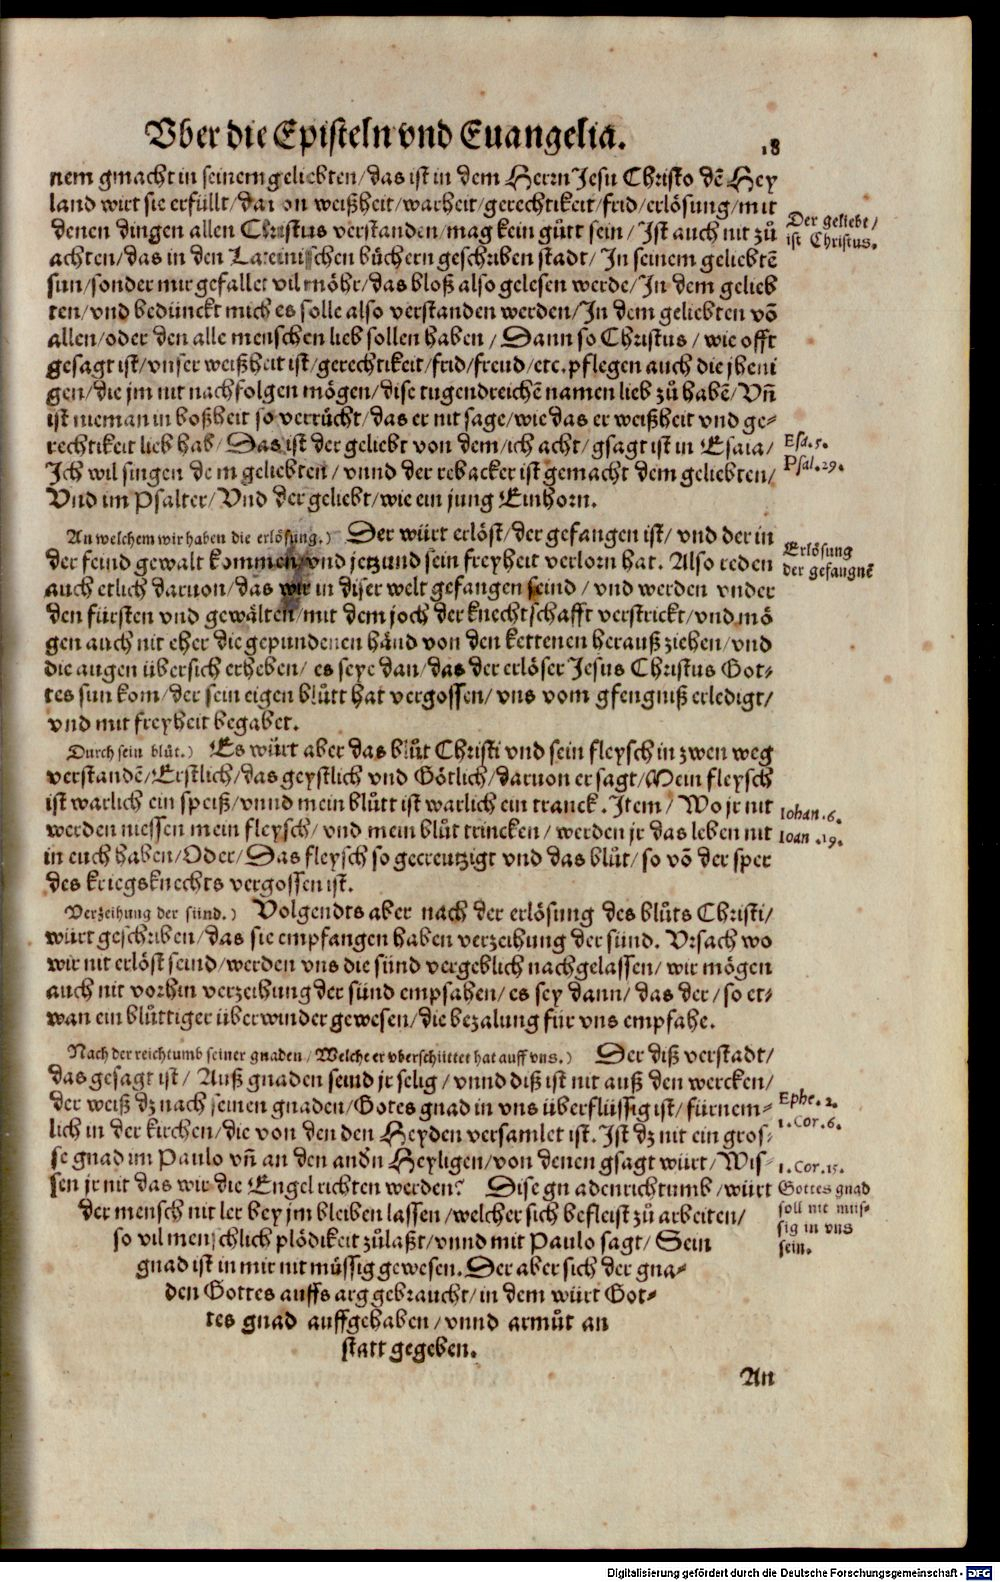 Vber die Episteln vnd Euangelia.
18
nem gmacht in seinem geliebten/das ist in dem Herrn Jesu Christo dẽ Hey
land wirt sie erfüllt/daruon weißheit/warheit/gerechtikeit/frid/erlösung/mit
denen dingen allen Christus verstanden/mag kein gůtt sein/Ist auch nit zů
achten/das in den Lateinischen bůchern geschriben stadt/In seinem geliebtẽ
sun/sonder mir gefallet vil mõhr/das bloß also gelesen werde/In dem gelieb
ten/vnd bedünckt mich es solle also verstanden werden/In dem geliebten võ
allen/oder den alle menschen lieb sollen haben/Dann so Christus/wie offt
gesagt ist/vnser weißheit ist/gerechtikeit/frid/freud/etc. pflegen auch die jheni
gen/die jm nit nachfolgen mögen/dise tugendreichẽ namen lieb zů habẽ/Vñ
ist nieman in boßheit so verrůcht/das er nit sage/wie das er weißheit vnd ge-
rechtikeit lieb hab/Das ist der geliebt von dem/ich acht/gsagt ist in Esaia/
Ich wil singen dem geliebten/vnnd der rebacker ist gemacht dem geliebten/
Vnd im Psalter/Vnd der geliebt/wie ein jung Einhorn.
Der geliebt/
ist Christus.
Esa. 5.
Psal. 29.
An welchem wir haben die erlösung.) Der würt erlöst/der gefangen ist/vnd der in
der feind gewalt kommen/vnd jetzund sein freyheit verlorn hat. Also reden
auch etlich daruon/das wir in diser welt gefangen seind/vnd werden vnder
den fürsten vnd gewälten/mit dem joch der knechtschafft verstrickt/vnd mö
gen auch nit eher die gepundenen händ von den kettenen herauß ziehen/vnd
die augen übersich erheben/es seye dan/das der erlöser Jesus Christus Got-
tes sun kom/der sein eigen blůtt hat vergossen/vns vom gfengniß erledigt/
vnd mit freyheit begabet.
Erlösung
der gefangnẽ
Durch sein blůt.) Es würt aber das blůt Christi vnd sein fleysch in zwen weg
verstandẽ/Erstlich/das geystlich vnd Götlich/daruon er sagt/Mein fleysch
ist warlich ein speiß/vnnd mein blůtt ist warlich ein tranck. Item/Wo jr nit
werden niessen mein fleysch/vnd mein blůt trincken/werden jr das leben nit
in euch haben/Oder/Das fleysch so gecreutzigt vnd das blůt/so võ der sper
des kriegsknechts vergossen ist.
Iohan. 6.
Ioan. 19.
Verzeihung der sünd.) Volgendts aber nach der erlösung des blůts Christi/
würt geschriben/das sie empfangen haben verzeihung der sünd. Vrsach wo
wir nit erlöst seind/werden vns die sünd vergeblich nachgelassen/wir mögen
auch nit vorhin verzeihung der sünd empfahen/es sey dann/das der/so et-
wan ein blůttiger überwinder gewesen/die bezalung für vns empfahe.
Nach der reichtumb seiner gnaden/Welche er vberschüttet hat auff vns.) Der diß verstadt/
das gesagt ist/Auß gnaden seind jr selig/vnnd diß ist nit auß den wercken/
der weiß dz nach seinen gnaden/Gotes gnad in vns überflüssig ist/fürnem-
lich in der kirchen/die von den den Heyden versamlet ist. Ist dz nit ein gros-
se gnad im Paulo vñ an den andn Heyligen/von denen gsagt würt/Wis-
sen jr nit das wir die Engel richten werden? Dise gnadenrichtumb/würt
der mensch nit ler bey jm bleiben lassen/welcher sich befleist zů arbeiten/
so vil menschlich plödikeit zůlaßt/vnnd mit Paulo sagt/Sein
gnad ist in mir nit müssig gewesen. Der aber sich der gna-
den Gottes auffs arg gebraucht/in dem würt Got-
tes gnad auffgehaben/vnnd armůt an
statt gegeben.
Ephe. 2.
1. Cor. 6.
1. Cor. 15.
Gottes gnad
soll nit müs-
sig in vns
sein.
An
Digitalisierung gefördert durch die Deutsche Forschungsgemeinschaft - DFG